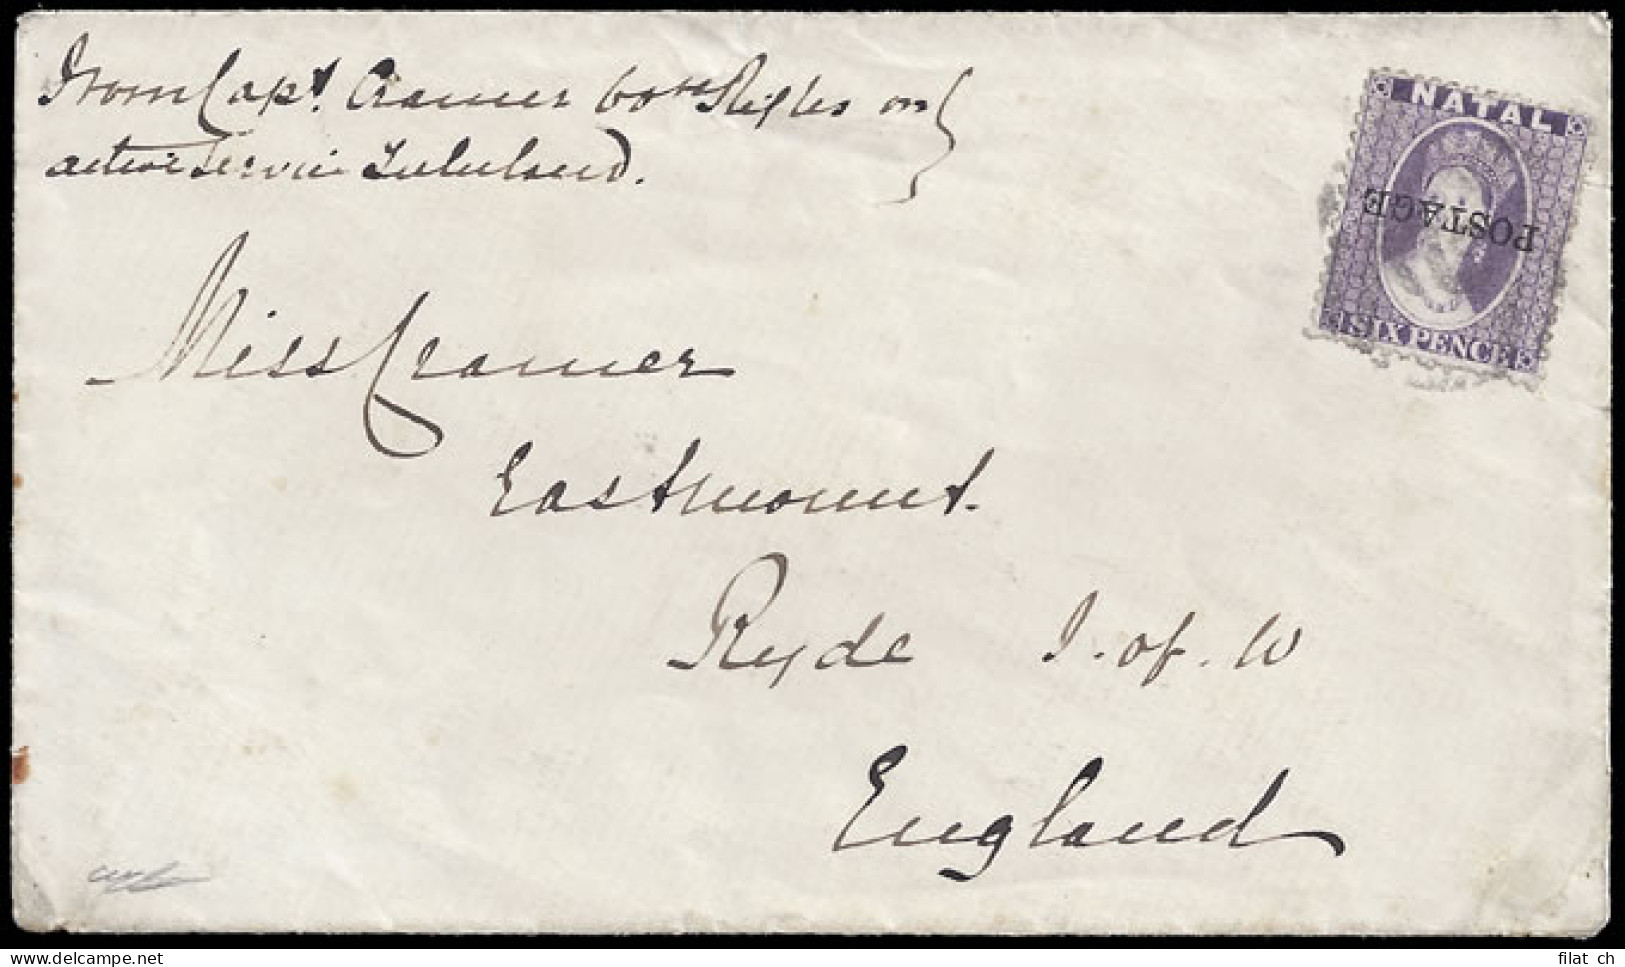 From Capt. Cramer 60th Rifles on
active service Zululand.
NATAL
POSTAGE
SIX PENCE
Miss Cramer
Eastmount.
Ryde I. of. W
England
delcampe.net
filat ch